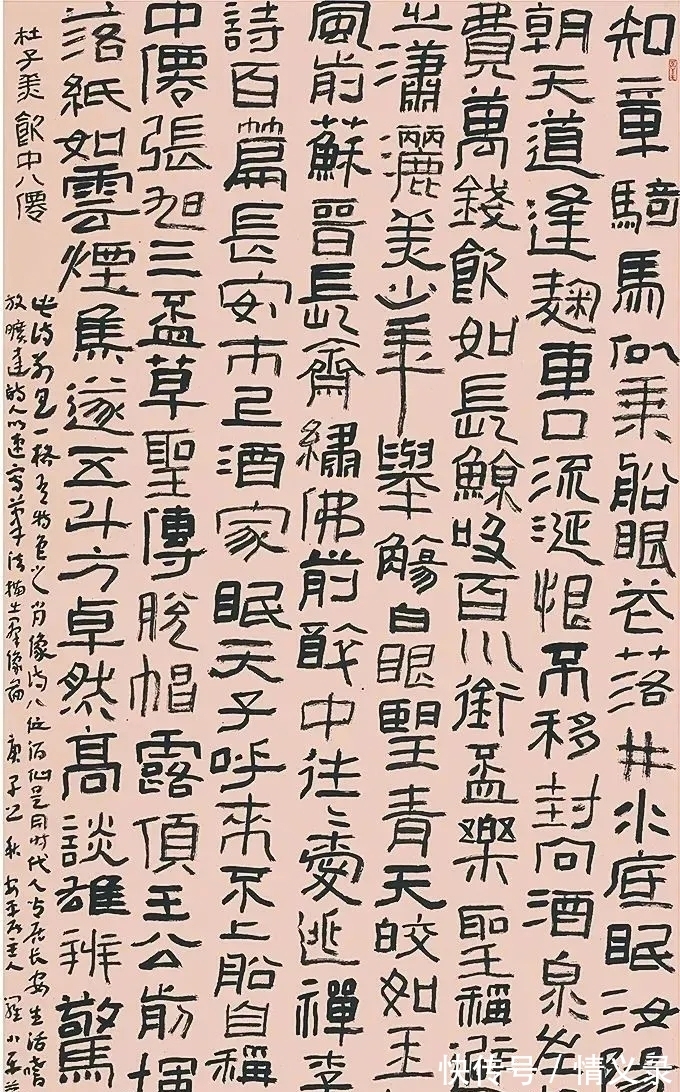 知章騎馬似乘船眼花落井水底眠汝
朝天道逢麹車口流涎恨不移封向酒泉左
費萬錢飲如長鯨吸百川銜盃樂聖稱
之瀟灑美少年舉觴白眼望青天皎如玉
風前蘇晉長齋繡佛前醉中往〻愛逃禪李
詩百篇長安市上酒家眠天子呼來不上船自稱
中僊張旭三盃草聖傳脫帽露頂王公前揮
落紙如雲煙焦遂五斗方卓然高談雄辨驚
杜子美飲中八僊
此詩别具一格有特色之肖像詩八位酒仙是同時代人皆居長安生活嗜
放曠達的人以速寫筆法描出群像圖 庚子之秋 主人 羅小平
快传号/情义录